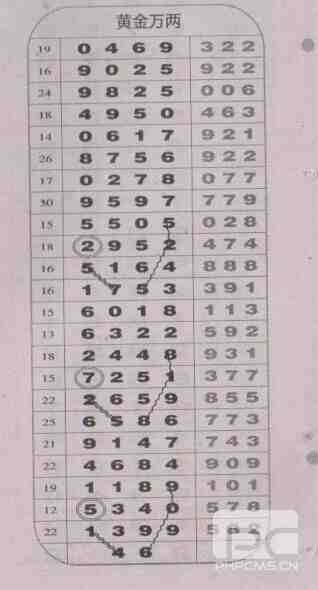 黄金万两
19 0 4 6 9 3 2 2
16 9 0 2 5 9 2 2
24 9 8 2 5 0 0 6
18 4 9 5 0 4 6 3
14 0 6 1 7 9 2 1
26 8 7 5 6 9 2 2
17 0 2 7 8 0 7 7
30 9 5 9 7 7 7 9
15 5 5 0 5 0 2 8
18 2 9 5 2 4 7 4
16 5 1 6 4 8 8 8
16 1 7 5 3 3 9 1
15 6 0 1 8 1 1 3
13 6 3 2 2 5 9 2
18 2 4 4 8 9 3 1
15 7 2 5 1 3 7 7
22 2 6 5 9 8 5 5
25 6 5 8 6 7 7 3
21 9 1 4 7 7 4 3
22 4 6 8 4 9 0 9
19 1 1 8 9 1 0 1
12 5 3 4 0 5 7 8
22 1 3 9 9
4 6
PHPCMS.CN